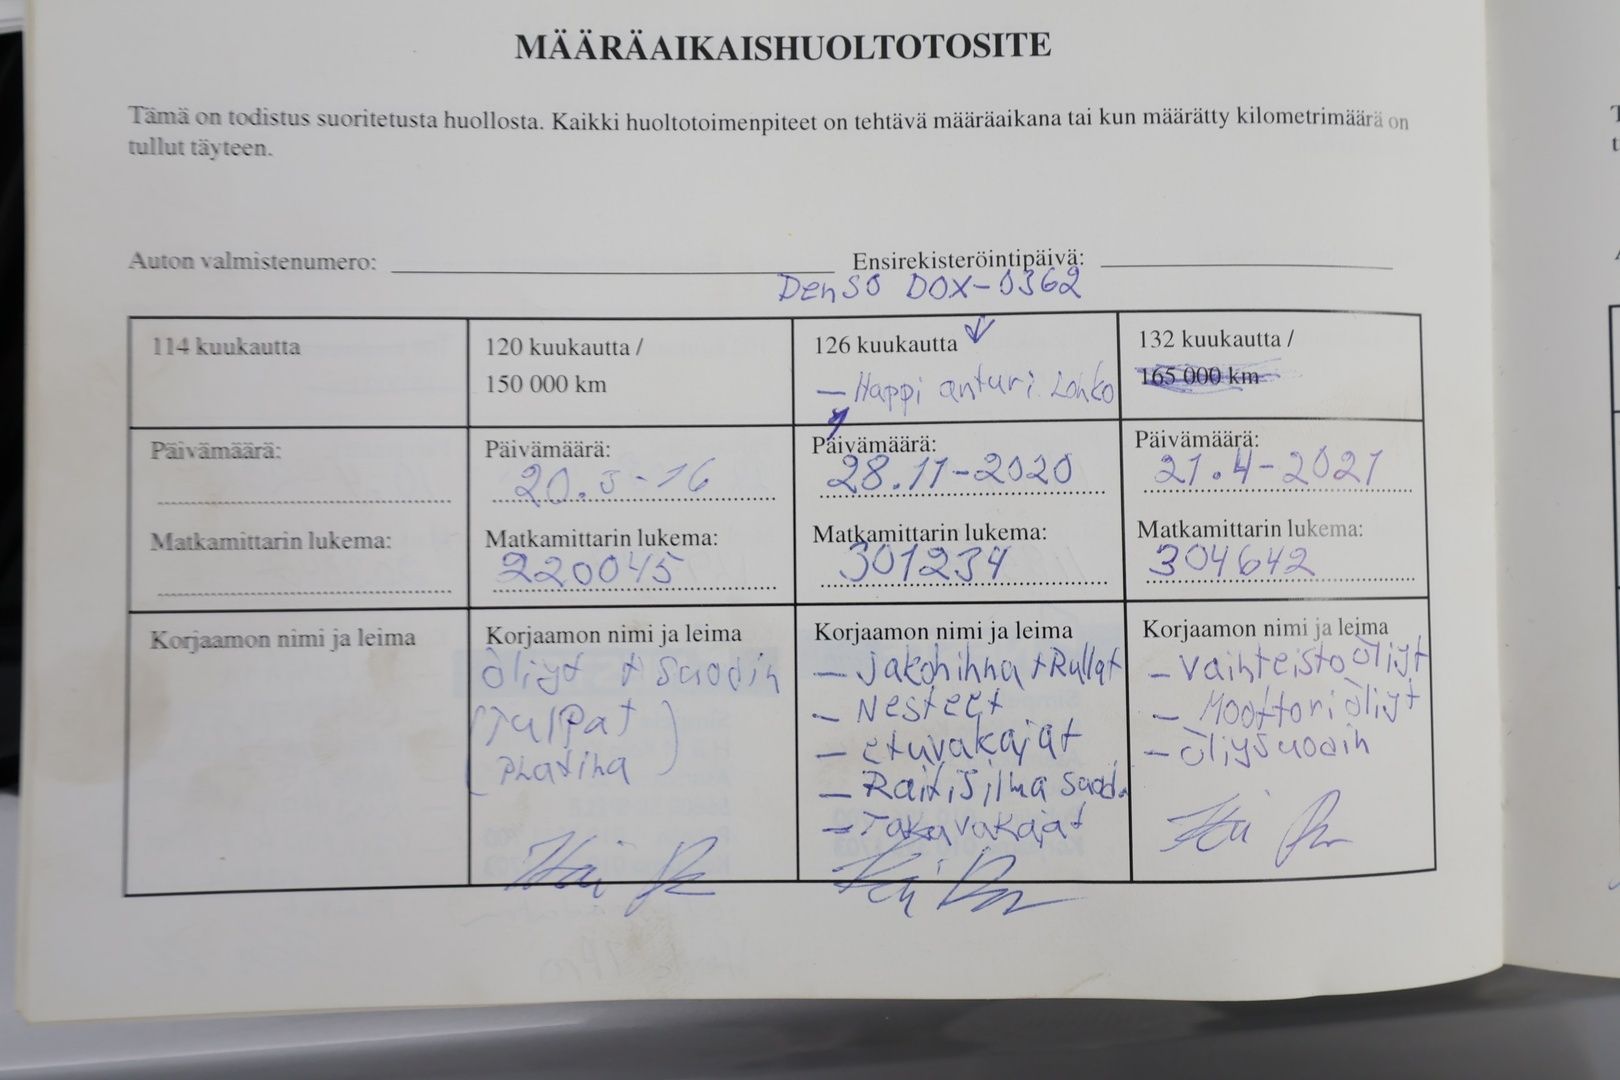 MÄÄRÄAIKAISHUOLTOTOSITE
Tämä on todistus suoritetusta huollosta. Kaikki huoltotoimenpiteet on tehtävä määräaikana tai kun määrätty kilometrimäärä on
tullut täyteen.
Auton valmistenumero:
Ensirekisteröintipäivä:
DENSO DOX-0362
114 kuukautta
Päivämäärä:
Matkamittarin lukema:
Korjaamon nimi ja leima
120 kuukautta /
150 000 km
Päivämäärä:
20.5-16
Matkamittarin lukema:
220045
Korjaamon nimi ja leima
Öljyt + Suodin
(Tulpat
Platina)
126 kuukautta
- Happi anturi. Lohko
Päivämäärä:
28.11-2020
Matkamittarin lukema:
301234
Korjaamon nimi ja leima
- Jakohihna + Rullat
- Nesteet
- etuvakajat
- Raitisilma suod.
- Takavakajat
132 kuukautta /
165 000 km
Päivämäärä:
21.4-2021
Matkamittarin lukema:
304642
Korjaamon nimi ja leima
- Vaihteistoöljyt
- Moottoriöljyt
- Öljysuodin